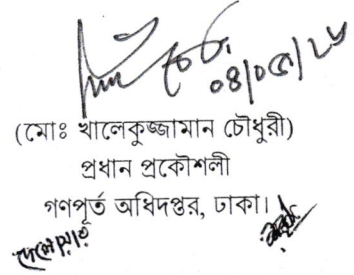 ০৪/০৫/২৬
(মোঃ খালেকুজ্জামান চৌধুরী)
প্রধান প্রকৌশলী
গণপূর্ত অধিদপ্তর, ঢাকা।